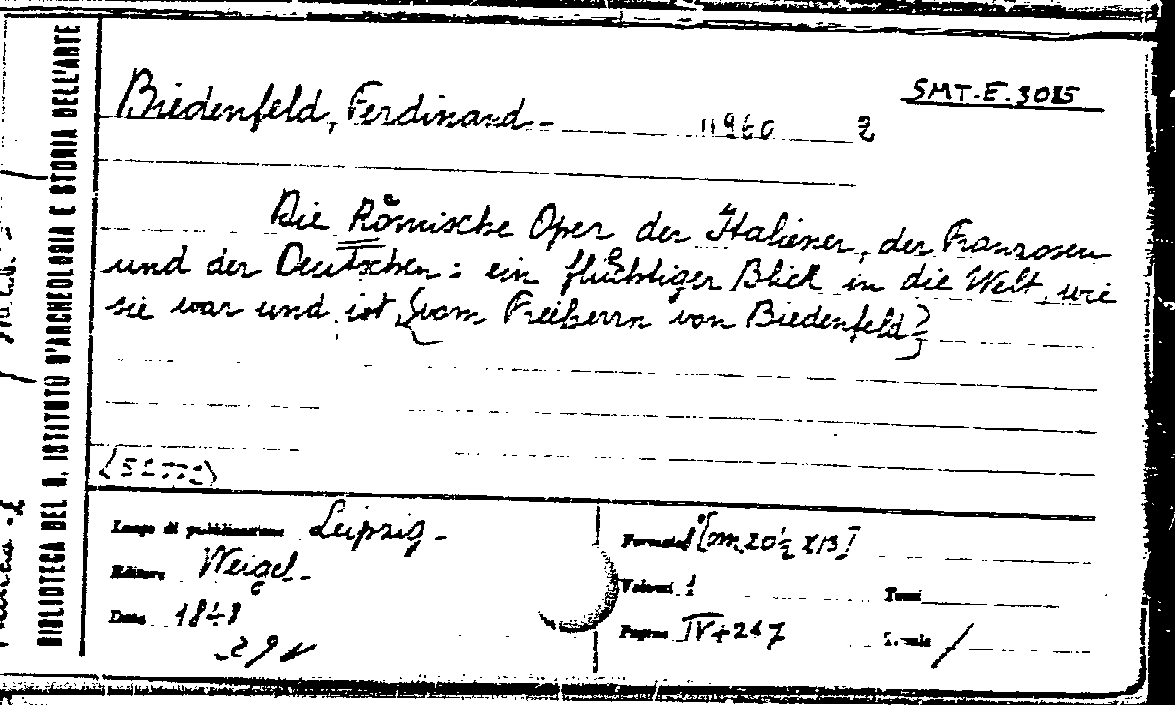 BIBLIOTECA DEL R. ISTITUTO D'ARCHEOLOGIA E STORIA DELL'ARTE
SMT.E.3085
Biedenfeld, Ferdinand - 11960 2
Die Römische Oper der Italiener, der Franzosen
und der Deutschen: ein flüchtiger Blick in die Welt, wie
sie war und ist [vom Freiherrn von Biedenfeld]
Luogo di pubblicazione Leipzig -
Formato [cm 20½ X 13]
Editore Weigel -
Volumi 1 Tomi
Data 1848
Pagine IV+247 Tavole /